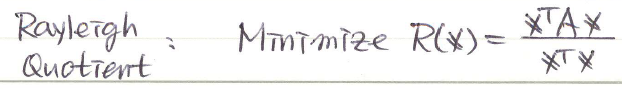 Rayleigh Quotient : Minimize R(x) = xᵀAx / xᵀx